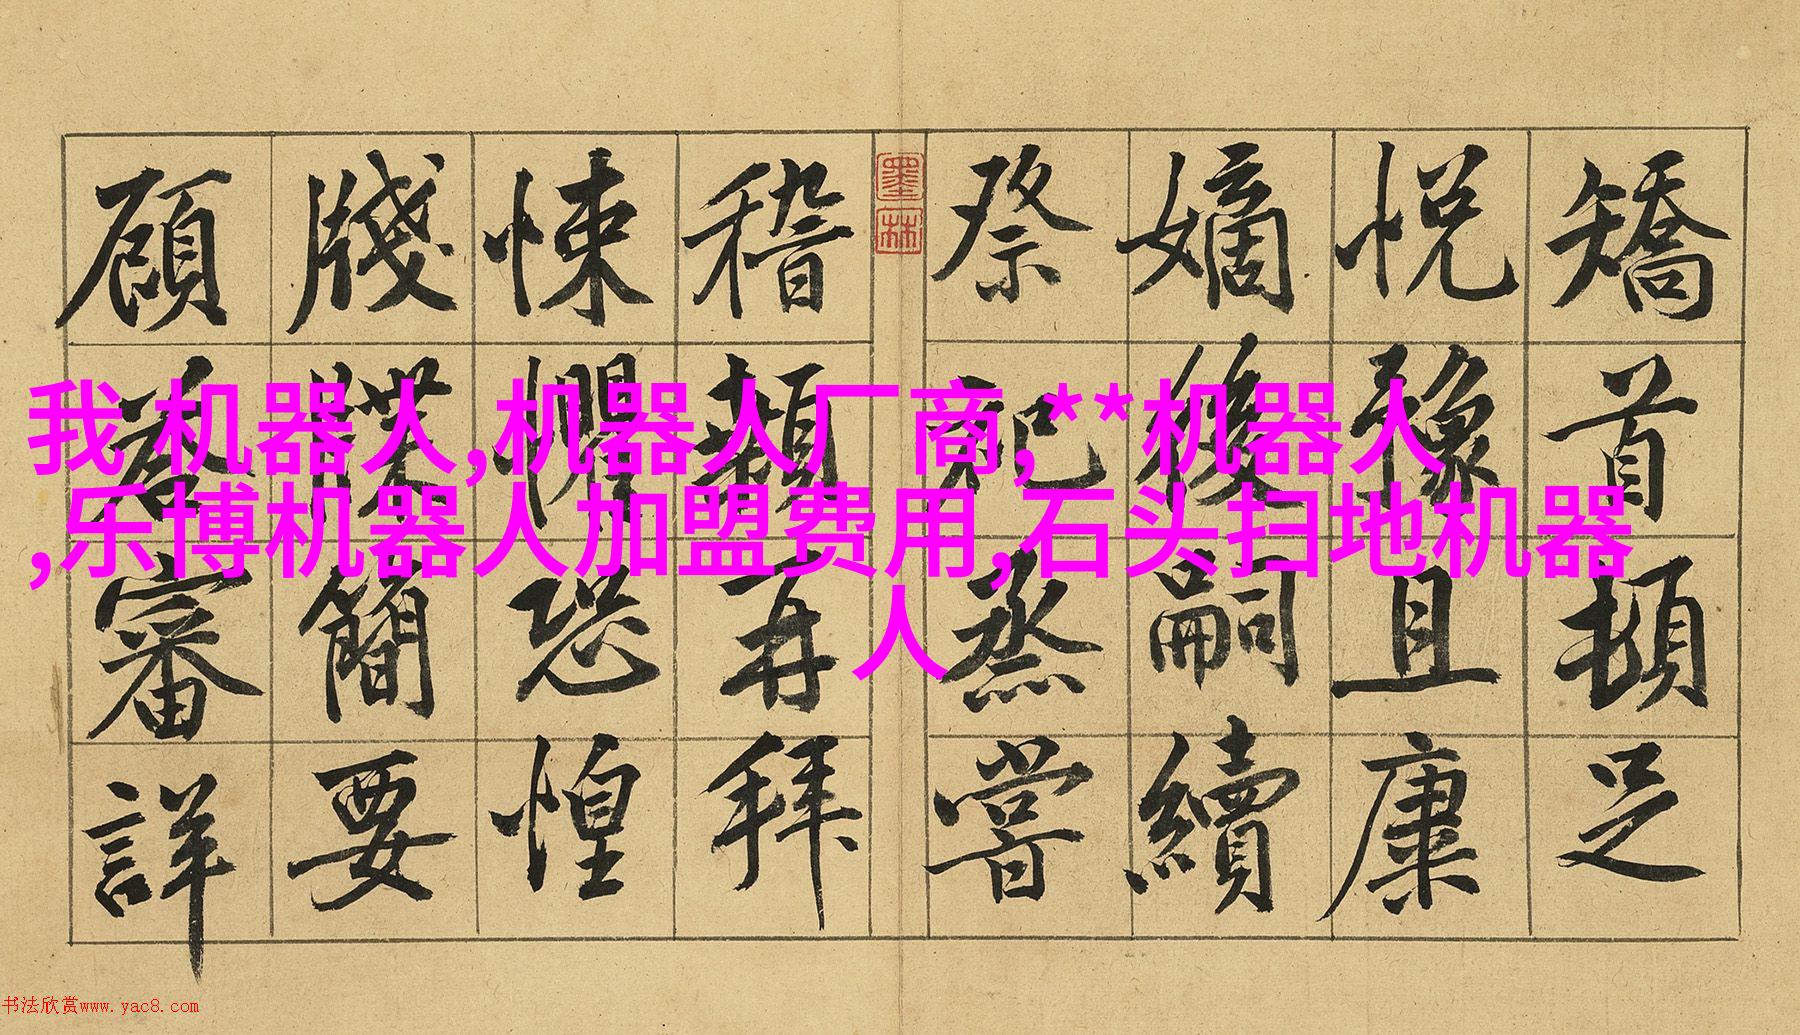 矯首頓足
悅豫且康
嫡後嗣續
祭祀蒸嘗
墨林
稽顙再拜
悚懼恐惶
牋牒簡要
顧荅審詳
我 机器人,机器人厂商,**机器人
,乐博机器人加盟费用,石头扫地机器
人
书法欣赏www.yac8.com